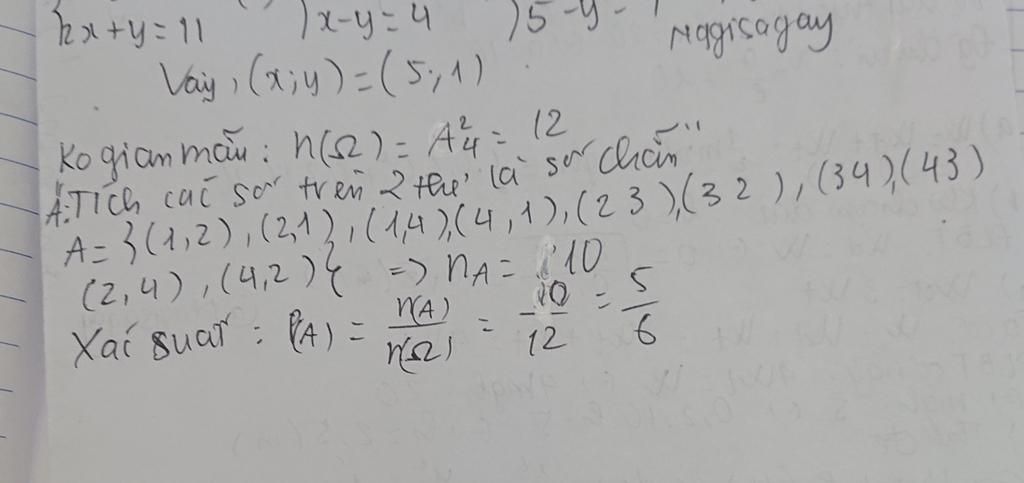 2x+y=11 )x-y=4 )5-y=
Nagisagay
Vậy, (x;y)=(5;1)
Ko gian mẫu: n(Ω) = A²₄ = 12
A: "Tích các số trên 2 thẻ là số chẵn"
A = {(1,2), (2,1), (1,4), (4,1), (2 3), (3 2), (34), (43)
(2,4), (4,2)} => nA = 10
Xác suất: P(A) = n(A)/n(Ω) = 10/12 = 5/6